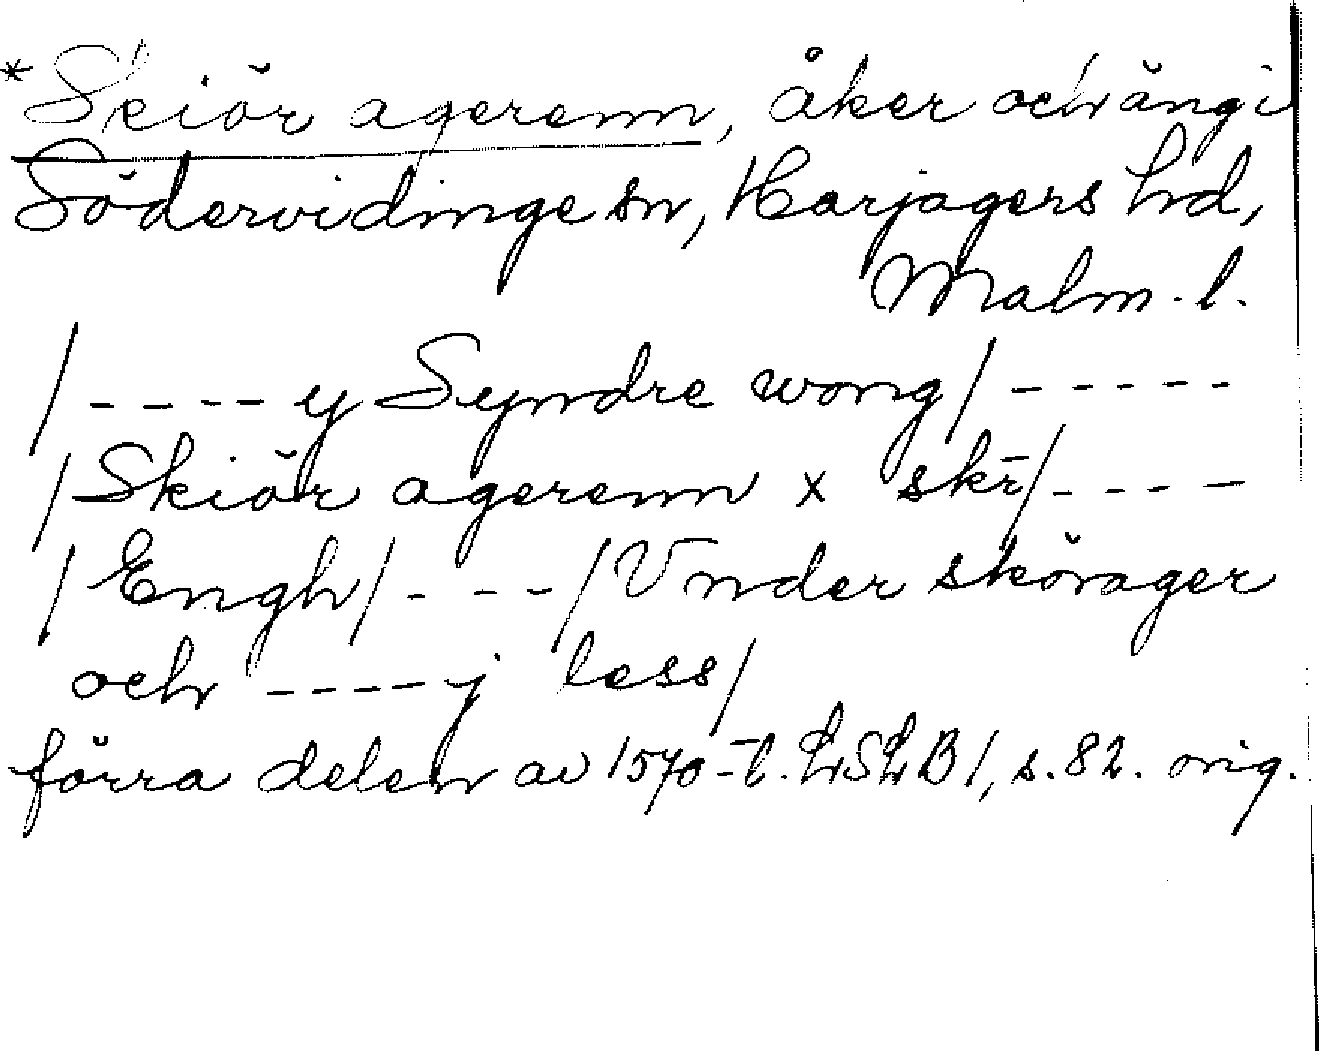 *Skiör agerenn, åker och äng i
Södervidinge sn, Harjagers hd,
Malm. l.
/---- y Syndre wong/-----
/Skiör agerenn x skr̄/----
/Engh/---/Vnder skörager
och ----j less/
förra delen av 1570-t. LSLB 1, s. 82. orig.